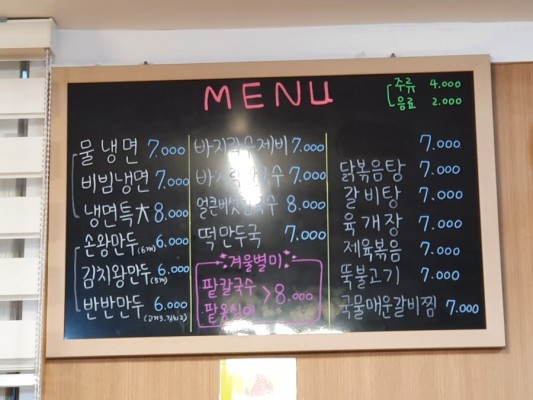 MENU
주류 4.000
음료 2.000
물냉면 7.000
비빔냉면 7.000
냉면특大 8.000
손왕만두 6.000
김치왕만두 6.000
반반만두 6.000
바지락수제비 7.000
7.000
얼큰버섯칼국수 8.000
떡만두국 7.000
겨울별미
팥칼국수
팥옹심이 > 8.000
7.000
닭볶음탕 7.000
갈비탕 7.000
육개장 7.000
제육볶음 7.000
뚝불고기 7.000
국물매운갈비찜 7.000